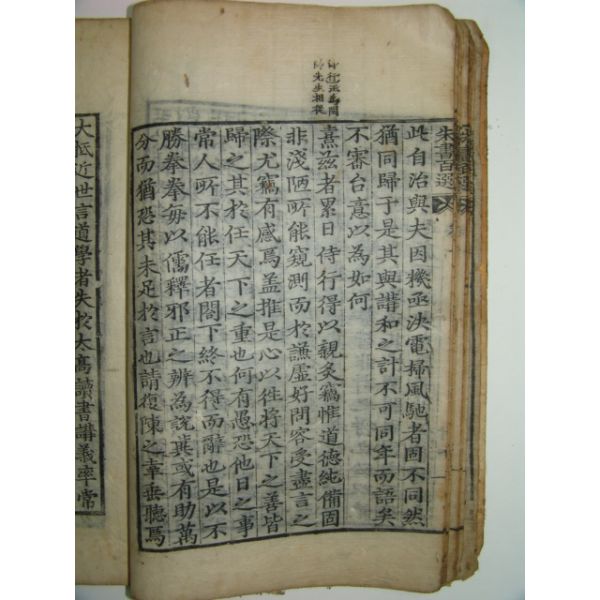 朱書百選
此自治與夫因機亟決電掃風馳者固不同然
猶同歸于是其與諧和之計不可同年而語矣
不審台意以為如何
先生相從
熹茲者累日侍行得以親炙竊惟道德純備固
非淺陋所能窺測而於謙虛好問容受盡言之
際尤竊有感焉盖推是心以往將天下之善皆
歸之其於任天下之重也何有愚恐他日之事
常人所不能任者閤下終不得而辭也是以不
勝拳拳每以儒釋邪正之辨為說冀或有助萬
分而猶恐其未足於言也請復陳之幸垂聽焉
大抵近世言道學者失於太高讀書講義率常